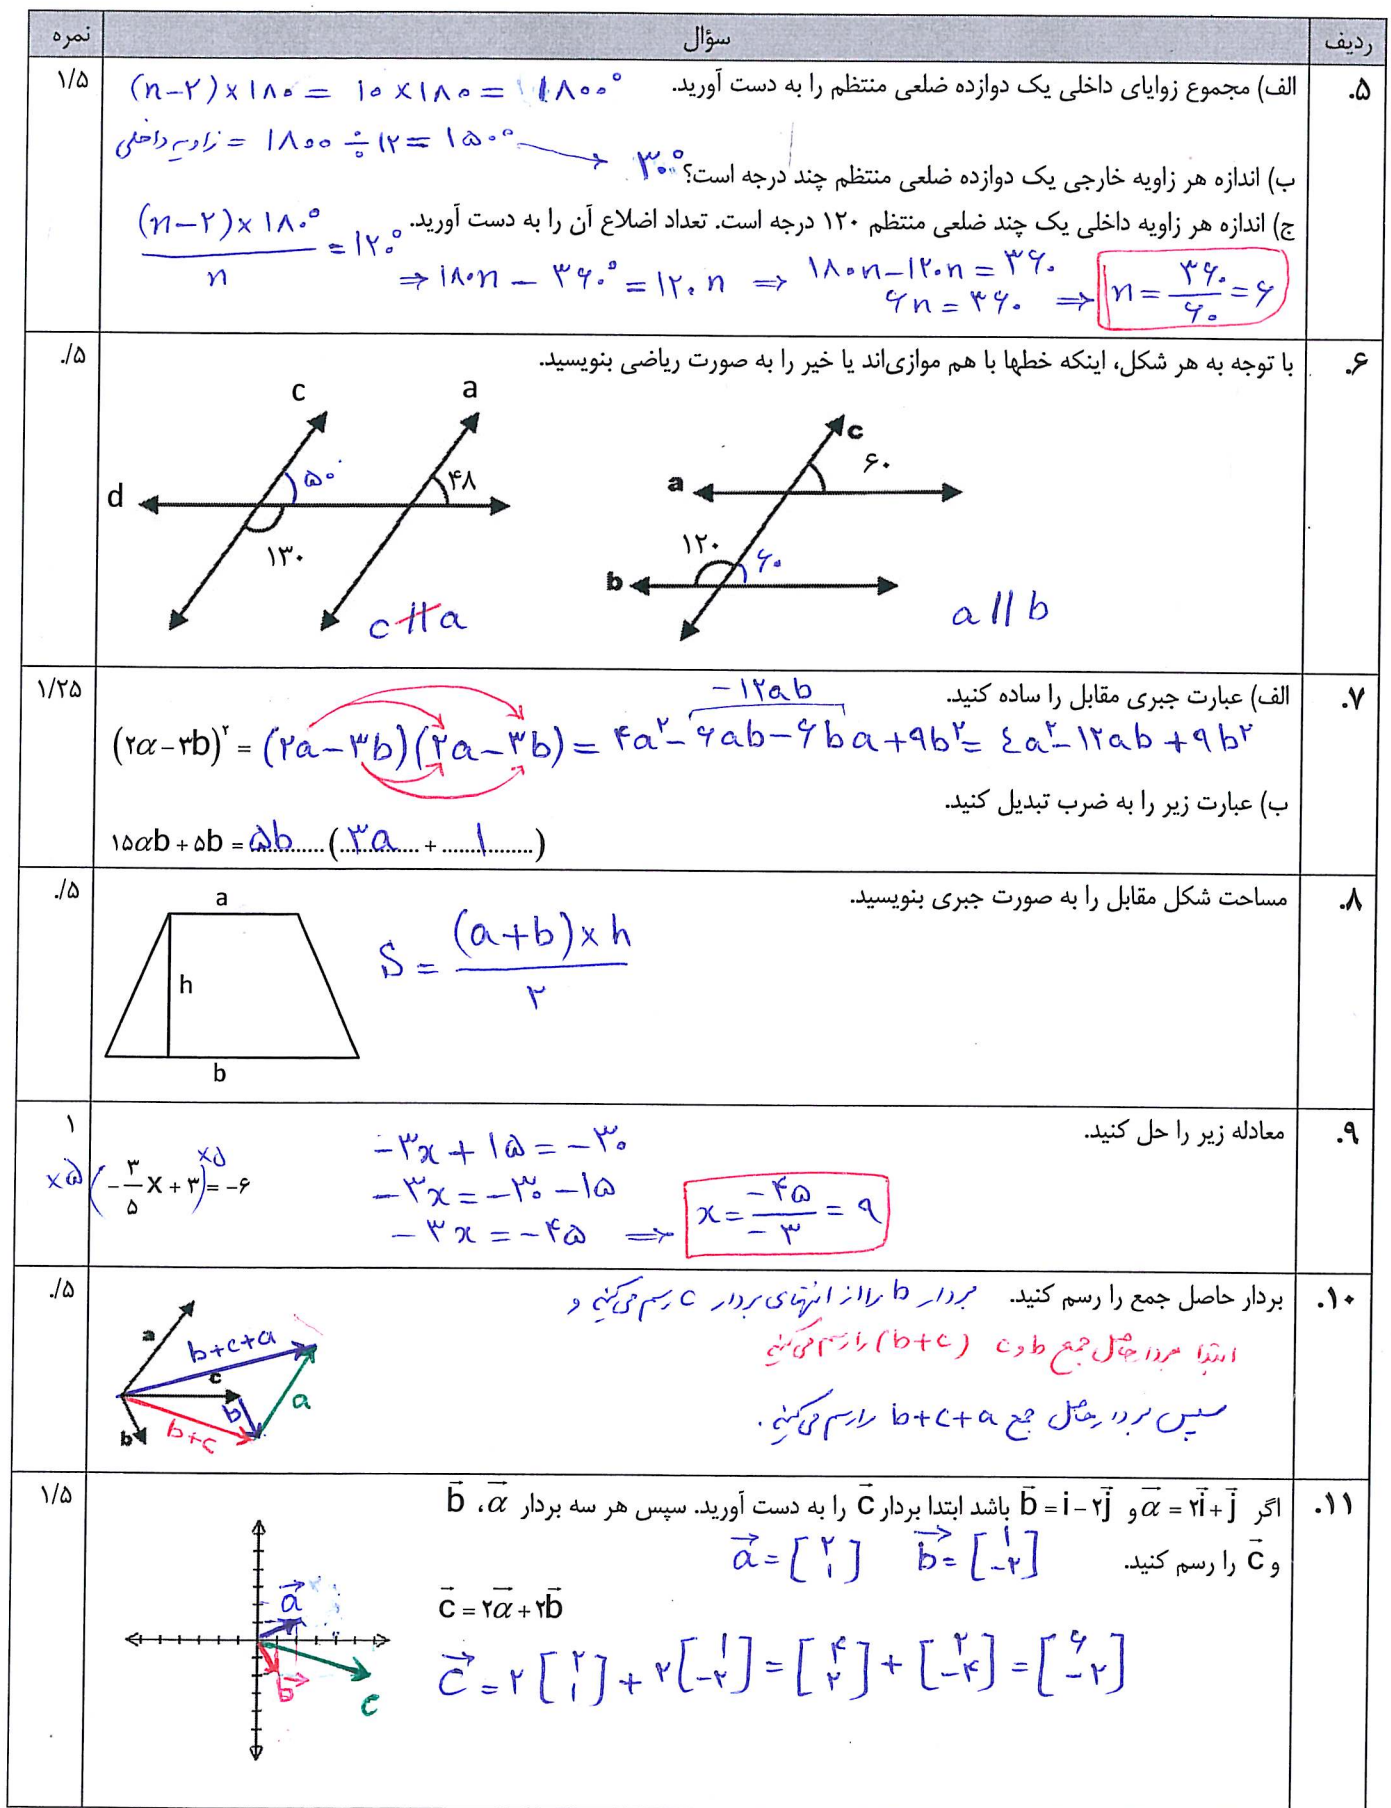 ردیف سؤال نمره
۵. الف) مجموع زوایای داخلی یک دوازده ضلعی منتظم را به دست آورید. (n-۲)×۱۸۰ = ۱۰×۱۸۰ = ۱۸۰۰° ۱/۵
زاویه داخلی = ۱۸۰۰ ÷ ۱۲ = ۱۵۰°
ب) اندازه هر زاویه خارجی یک دوازده ضلعی منتظم چند درجه است؟ ۳۰°
ج) اندازه هر زاویه داخلی یک چند ضلعی منتظم ۱۲۰ درجه است. تعداد اضلاع آن را به دست آورید.
(n-۲)×۱۸۰° / n = ۱۲۰° ⇒ ۱۸۰n - ۳۶۰° = ۱۲۰n ⇒ ۱۸۰n-۱۲۰n = ۳۶۰
۶n = ۳۶۰ ⇒ n = ۳۶۰/۶۰ = ۶
۶. با توجه به هر شکل، اینکه خطها با هم موازی‌اند یا خیر را به صورت ریاضی بنویسید. ./۵
c a
c
۶۰
a
۵۰° ۴۸
d
۱۳۰
۱۲۰ ۶۰
b
c ∦ a
a || b
۷. الف) عبارت جبری مقابل را ساده کنید. ۱/۲۵
-۱۲ab
(۲α-۳b)^۲ = (۲a-۳b)(۲a-۳b) = ۴a^۲-۶ab-۶ba+۹b^۲ = ٤a^۲-۱۲ab+۹b^۲
ب) عبارت زیر را به ضرب تبدیل کنید.
۱۵αb + ۵b = ۵b (۳a + ۱)
۸. مساحت شکل مقابل را به صورت جبری بنویسید. ./۵
a
h
b
S = (a+b)×h / ۲
۹. معادله زیر را حل کنید. ۱
×۵ (-۳/۵ x + ۳) = -۶ ×۵
-۳x + ۱۵ = -۳۰
-۳x = -۳۰ - ۱۵
-۳x = -۴۵ ⇒ x = -۴۵/-۳ = ۹
۱۰. بردار حاصل جمع را رسم کنید. بردار b را از انتهای بردار c رسم می‌کنیم و ./۵
ابتدا بردار حاصل جمع b و c (b+c) را رسم می‌کنیم
سپس بردار حاصل جمع b+c+a را رسم می‌کنیم.
a
b+c+a
c
b a
b
b+c
۱۱. اگر α = ۲i + j و b = i - ۲j باشد ابتدا بردار c را به دست آورید. سپس هر سه بردار α، b ۱/۵
و c را رسم کنید. a = [۲ ۱] b = [۱ -۲]
c = ۲α + ۲b
c = ۲[۲ ۱] + ۲[۱ -۲] = [۴ ۲] + [۲ -۴] = [۶ -۲]
a
b
c